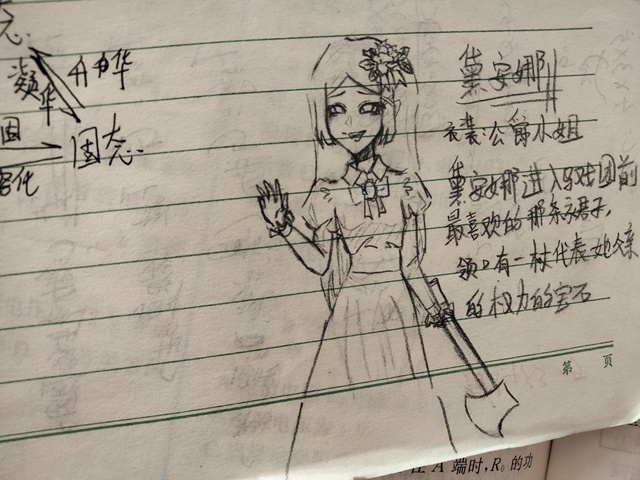 态
升华
凝华
固
固态
容化
黛安娜
衣装:公爵小姐
黛安娜进入马戏团前
最喜欢的那条裙子,
领口有一枚代表她父亲
的权力的宝石
第 页
在 A 端时,R₀ 的功